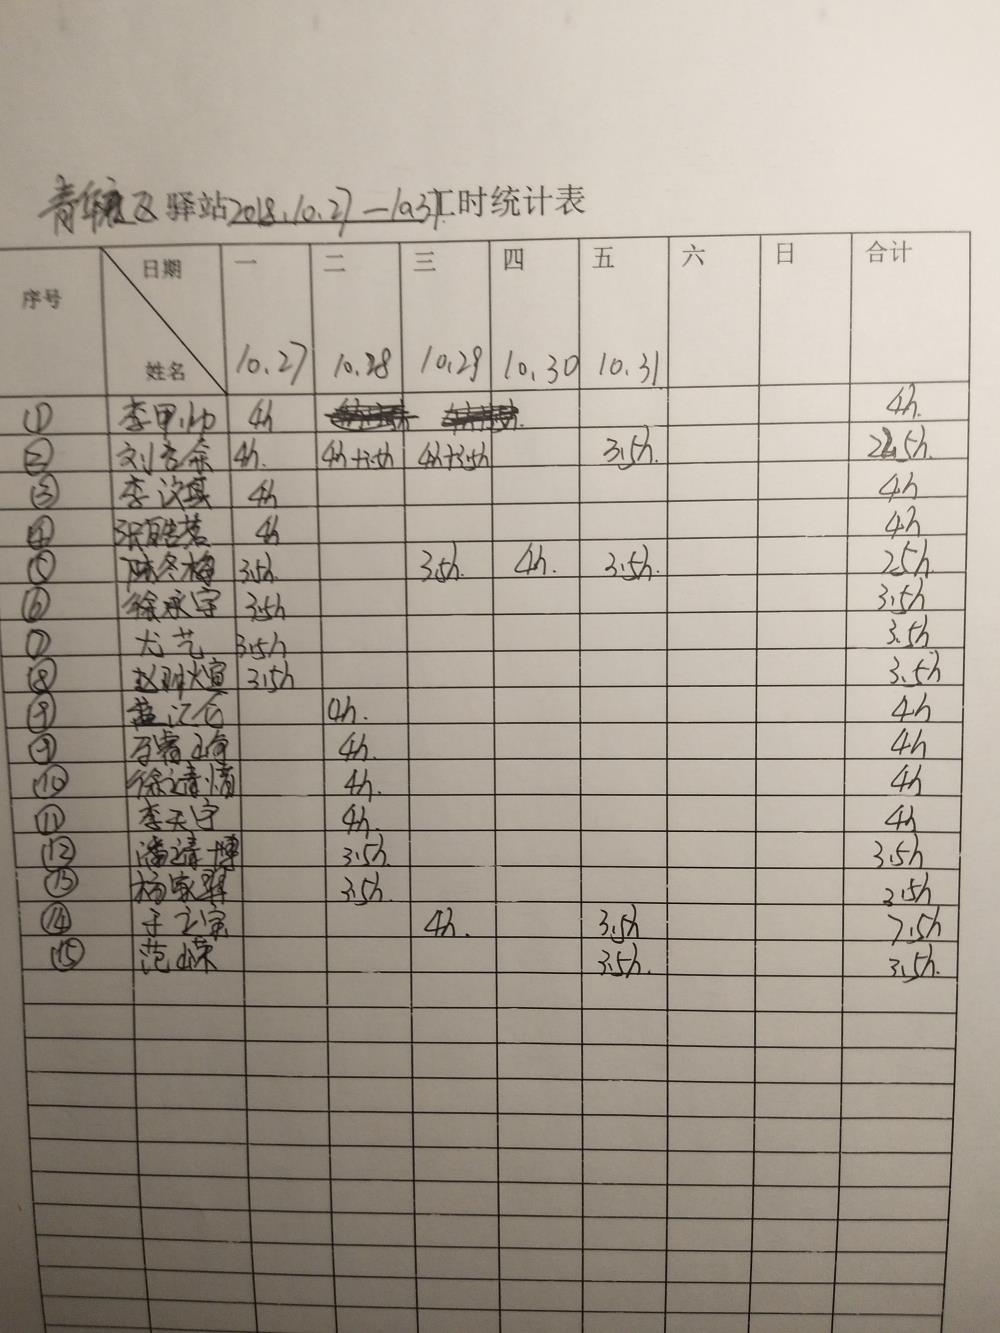 驿站2018.10.27—10.31工时统计表
序号 日期 姓名 一 10.27 二 10.28 三 10.29 四 10.30 五 10.31 六 日 合计
① 李甲帅 4h 4h
② 刘杏余 4h. 4h+3.5h 4h+3.5h 3.5h. 22.5h.
③ 李汶其 4h 4h
④ 4h 4h
⑤ 陈冬梅 3.5h. 3.5h. 4h. 3.5h. 25h
⑥ 徐永宇 3.5h 3.5h
⑦ 尤艺 3.5h 3.5h
⑧ 3.5h 3.5h
⑨ 4h. 4h
⑨ 4h. 4h
⑩ 徐 4h. 4h
⑪ 李天宇 4h. 4h
⑫ 潘靖博 3.5h. 3.5h
⑬ 杨家 3.5h. 3.5h
⑭ 于立 4h. 3.5h 7.5h
⑮ 范 3.5h. 3.5h.